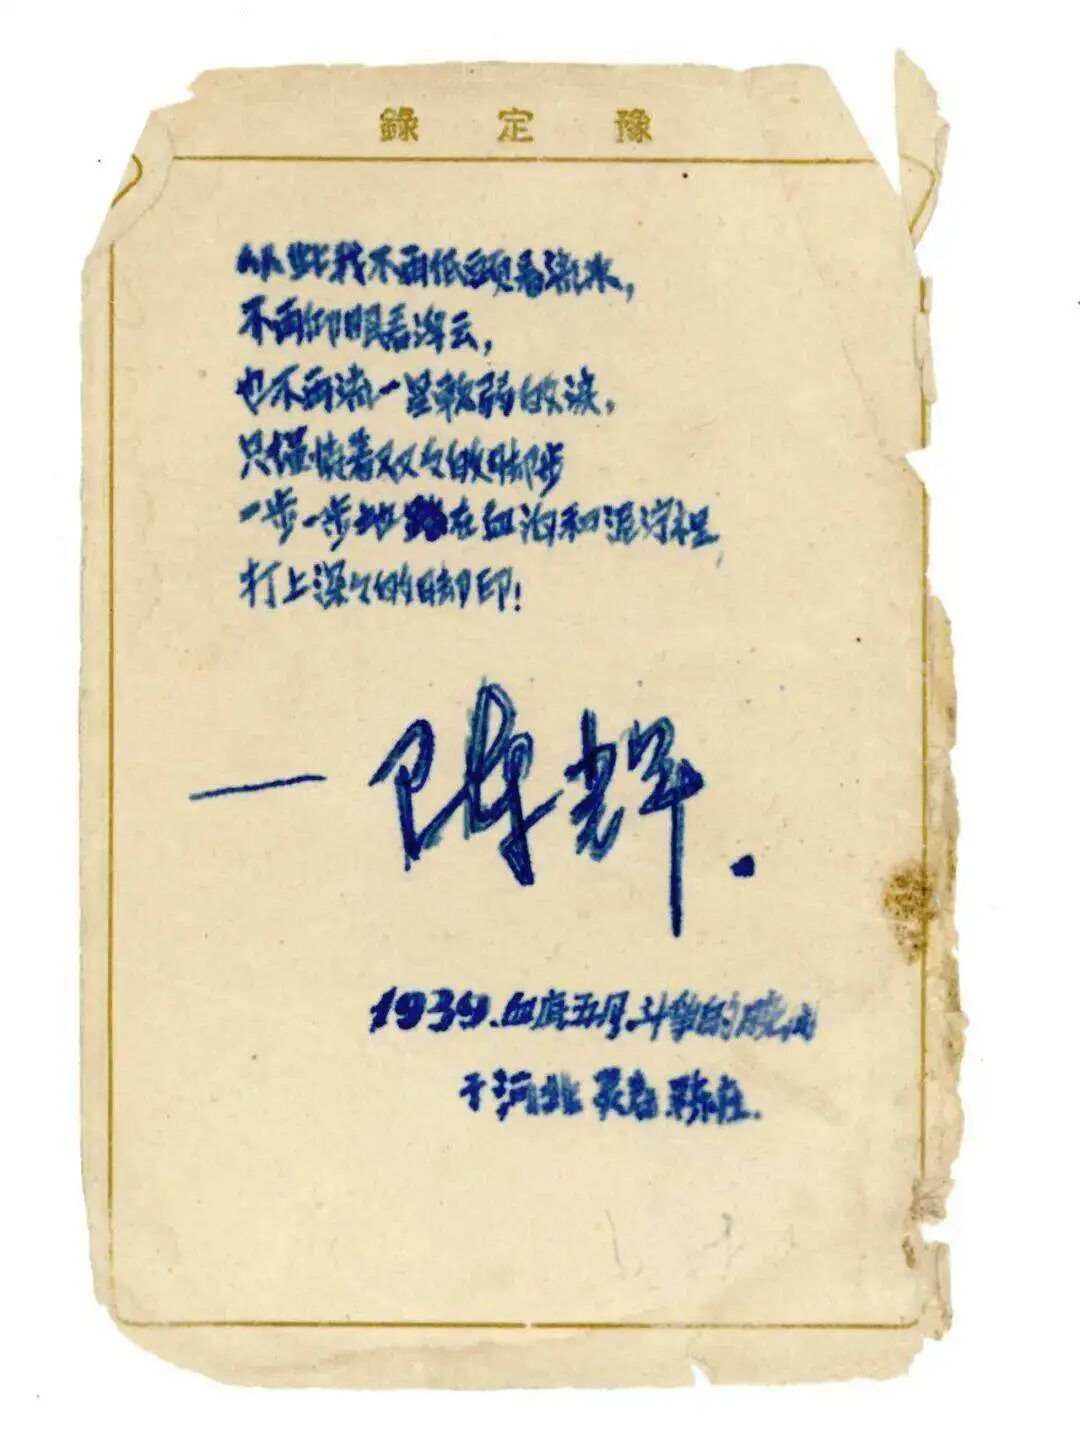 豫定錄
从此我不再低頭看流水，
不再仰眼看浮云，
也不再流一星軟弱的淚，
只僅着双々的脚步
一步一步地踏在血泊和泥泞裡，
打上深々的脚印！
—陳輝.
1939.血底五月.斗爭的
于河北 灵寿 陈庄.